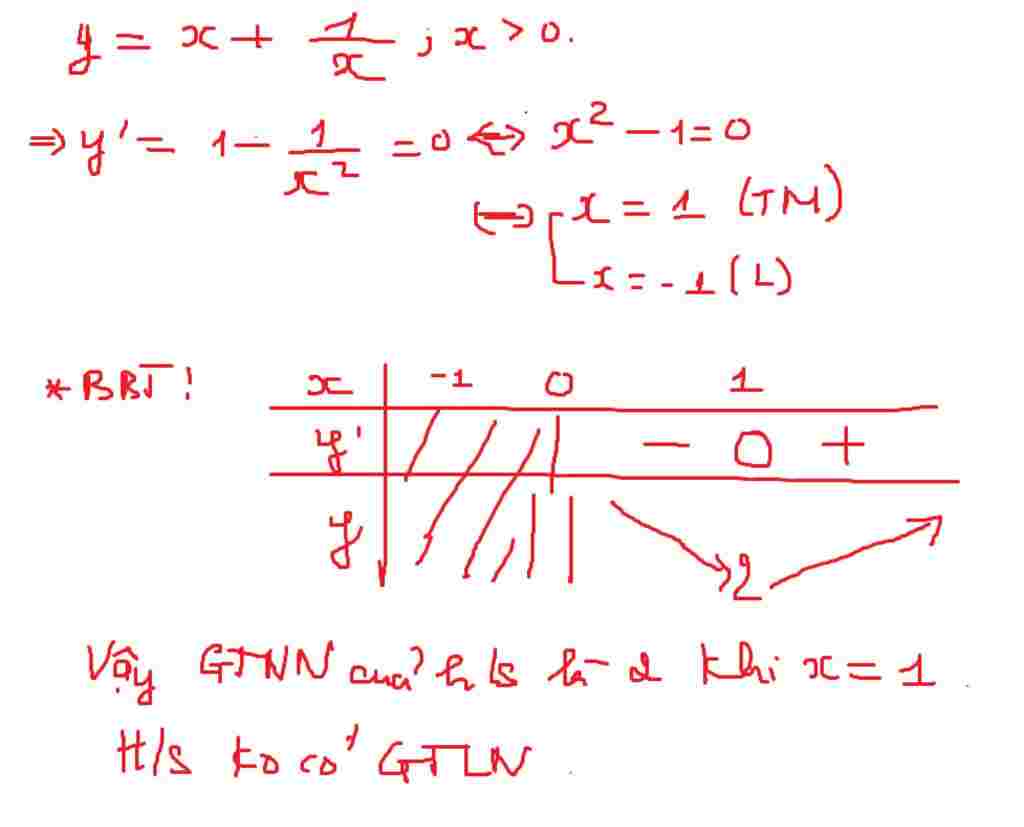 y = x + 1/x ; x > 0.
⇒ y' = 1 - 1/x² = 0 ⇔ x² - 1 = 0
⇔ [ x = 1 (TM)
x = -1 (L)
* BBT!
x -1 0 1
y' - 0 +
y 2
Vậy GTNN của h/s là 2 khi x = 1.
H/s ko có GTLN.